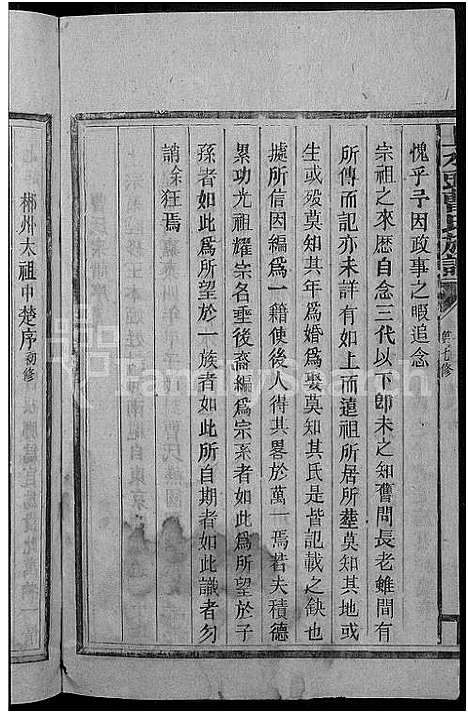 氏族譜
第七修
愧乎予因政事之暇追念
宗祖之來歷自念三代以下卽未之知舊問長老雖間有
所傳而記亦未詳有如上而遠祖所居所塟莫知其地或
生或殁莫知其年爲婚爲娶莫知其氏是皆記載之缺也
據所信因編爲一籍使後人得其畧於萬一焉若夫積德
累功光祖耀宗名垂後裔編爲宗系者如此爲所望於子
孫者如此爲所望於一族者如此所自期者如此識者勿
誚余狂焉
郴州太祖中楚序 初修